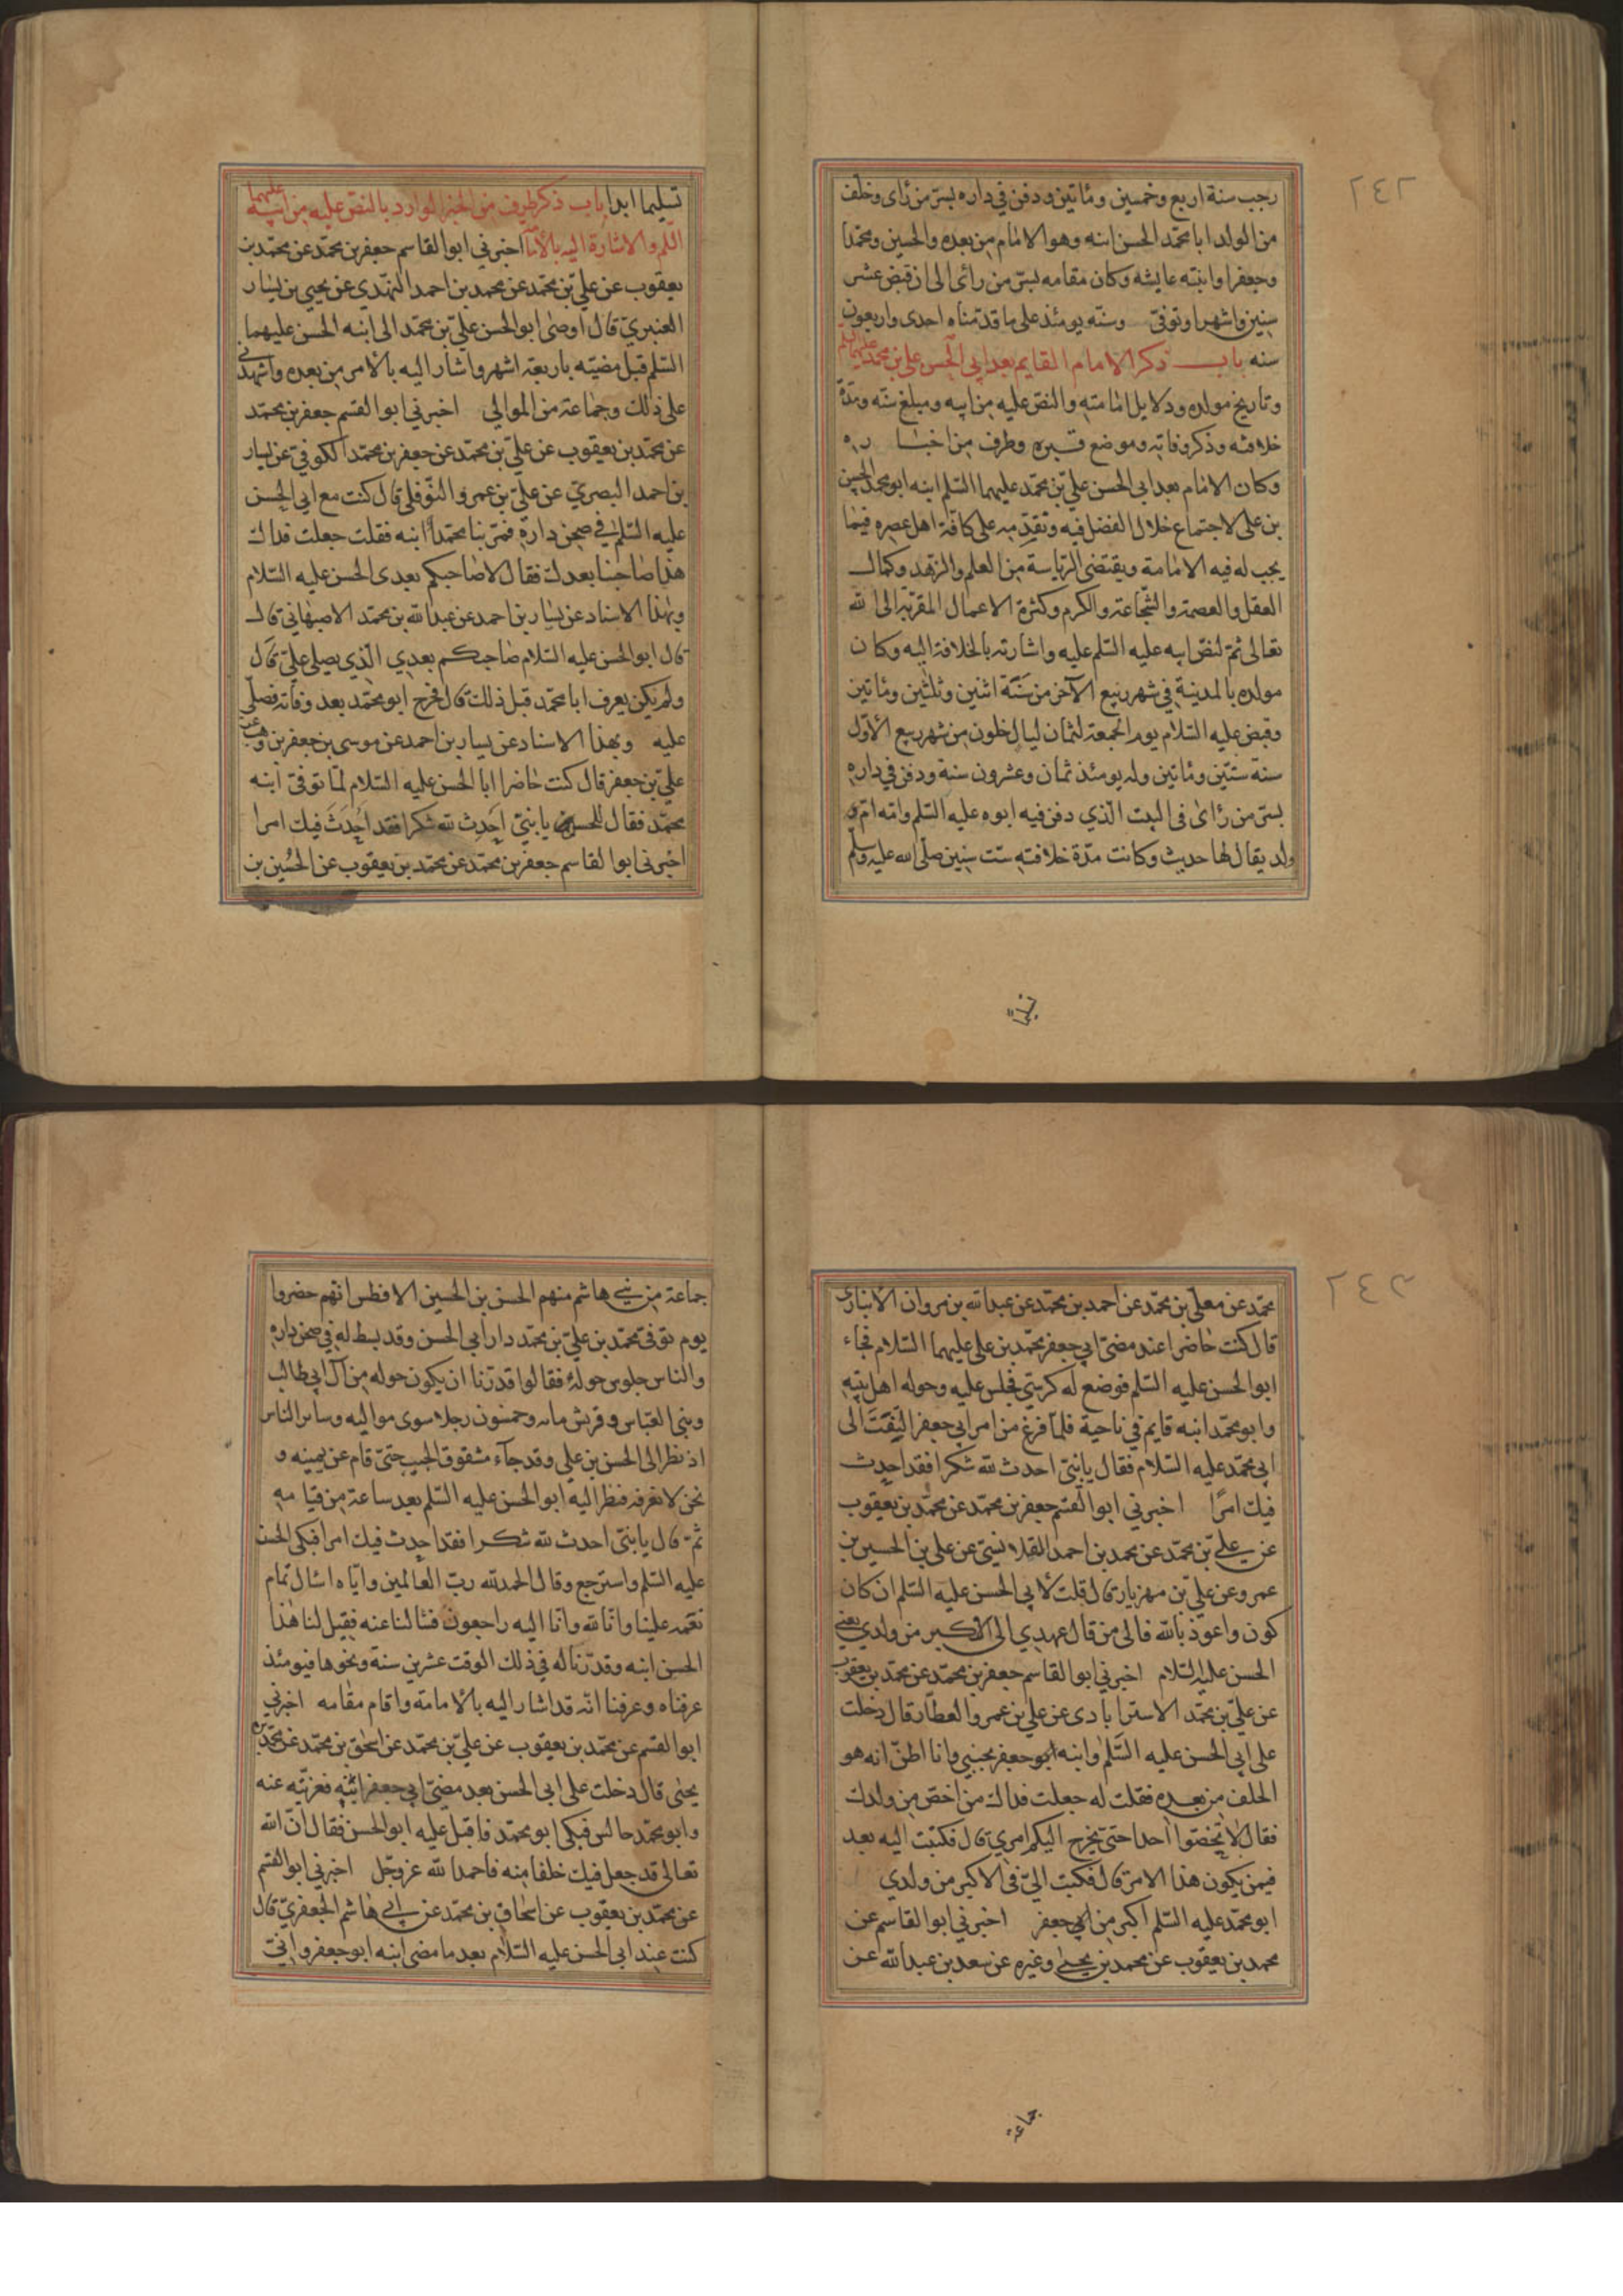 ٢٤٢
رجب سنة اربع وخمسين ومائتين ودفن في داره بسر من رأى وخلف
من الولد ابا محمد الحسن ابنه وهو الامام من بعده والحسين ومحمدا
وجعفرا وابنته عايشه وكان مقامه بسر من رأى الى ان قبض عشر
سنين واشهرا وتوفى وسنه يومئذ على ما قدمناه احدى واربعون
سنه باب ذكر الامام القايم بعد ابي الحسن علي بن محمد عليهما السلم
وتاريخ مولده ودلايل امامته والنص عليه من ابيه ومبلغ سنه ومدة
خلافته وذكر وفاته وموضع قبره وطرف من اخباره
وكان الامام بعد ابي الحسن علي بن محمد عليهما السلم ابنه ابو محمد الحسن
بن على لاجتماع خلال الفضل فيه وتقدمه على كافة اهل عصره فيما
يجب له فيه الامامة ويقتضى الرياسة من العلم والزهد وكمال
العقل والعصمة والشجاعة والكرم وكثرة الاعمال المقربة الى الله
تعالى ثم لنص ابيه عليه السلم عليه واشارته بالخلافة اليه وكان
مولده بالمدينة في شهر ربيع الآخر من سنة اثنين وثلثين ومائتين
وقبض عليه السلام يوم الجمعة لثمان ليال خلون من شهر ربيع الأول
سنة ستين ومائتين وله يومئذ ثمان وعشرون سنة ودفن في داره
بسر من رأى فى البيت الذي دفن فيه ابوه عليه السلم وامه ام
ولد يقال لها حديث وكانت مدة خلافته ست سنين صلى الله عليه وسلم
تسليما
تسليما ابدا باب ذكر طرف من الخبر الوارد بالنص عليه من ابيه عليهما
السلم والاشارة اليه بالأمامة اخبرني ابو القاسم جعفر بن محمد عن محمد بن
يعقوب عن علي بن محمد عن محمد بن احمد النهدي عن يحيى بن يسار
العنبري قال اوصى ابو الحسن علي بن محمد الى ابنه الحسن عليهما
السلم قبل مضيه باربعة اشهر واشار اليه بالأمر من بعده واشهدني
على ذلك وجماعة من الموالي اخبرني ابو القسم جعفر بن محمد
عن محمد بن يعقوب عن علي بن محمد عن جعفر بن محمد الكوفي عن يسار
بن احمد البصري عن علي بن عمرو النوفلي قال كنت مع ابي الحسن
عليه السلم في صحن داره فمر بنا محمدا ابنه فقلت جعلت فداك
هذا صاحبنا بعدك فقال لا صاحبكم بعدى الحسن عليه السلام
وبهذا الاسناد عن يسار بن احمد عن عبد الله بن محمد الاصبهاني قال
قال ابو الحسن عليه السلام صاحبكم بعدي الذي يصلي علي قال
ولم يكن يعرف ابا محمد قبل ذلك قال فخرج ابو محمد بعد وفاته فصلى
عليه وبهذا الاسناد عن يسار بن احمد عن موسى بن جعفر بن وهب عن
علي بن جعفر قال كنت حاضرا ابا الحسن عليه السلام لما توفى ابنه
محمد فقال للحسن يا بني احدث لله شكرا فقد احدث فيك امرا
اخبرنى ابو القاسم جعفر بن محمد عن محمد بن يعقوب عن الحسين بن
٢٤٣
محمد عن معلى بن محمد عن احمد بن محمد عن عبد الله بن مروان الأنباري
قال كنت حاضرا عند مضى ابي جعفر محمد بن على عليهما السلام فجاء
ابو الحسن عليه السلم فوضع له كرسي فجلس عليه وحوله اهل بيته
وابو محمد ابنه قايم في ناحية فلما فرغ من امر ابي جعفر التفت الى
ابي محمد عليه السلام فقال يا بني احدث لله شكرا فقد احدث
فيك امرًا اخبرني ابو القسم جعفر بن محمد عن محمد بن يعقوب
عن علي بن محمد عن محمد بن احمد القلانسي عن على بن الحسين بن
عمرو عن علي بن مهزيار قال قلت لأبي الحسن عليه السلم ان كان
كون واعوذ بالله فالى من قال عهدي الى الاكبر من ولدي يعني
الحسن عليه السلام اخبرني ابو القاسم جعفر بن محمد عن محمد بن يعقوب
عن علي بن محمد الاسترابادى عن علي بن عمرو العطار قال دخلت
على ابي الحسن عليه السلم وابنه ابو جعفر بجنبي وانا اظن انه هو
الخلف من بعده فقلت له جعلت فداك من اخص من ولدك
فقال لا تخصوا احدا حتى يخرج اليكم امري قال فكتبت اليه بعد
فيمن يكون هذا الامر قال فكتب الي في الاكبر من ولدي
ابو محمد عليه السلم اكبر من ابي جعفر اخبرني ابو القاسم عن
محمد بن يعقوب عن محمد بن يحيى وغيره عن سعد بن عبد الله عن
جماعة
جماعة من بني هاشم منهم الحسن بن الحسين الافطس انهم حضروا
يوم توفى محمد بن علي بن محمد دار ابي الحسن وقد بسط له في صحن داره
والناس جلوس حوله فقالوا قدرنا ان يكون حوله من آل ابي طالب
وبنى العباس وقريش مايه وخمسون رجلا سوى مواليه وساير الناس
اذ نظر الى الحسن بن على وقد جآء مشقوق الجيب حتى قام عن يمينه و
نحن لا نعرفه فنظر اليه ابو الحسن عليه السلم بعد ساعة من قيامه
ثم قال يا بني احدث لله شكرا فقد احدث فيك امرا فبكى الحسن
عليه السلم واسترجع وقال الحمد لله رب العالمين واياه اسال تمام
نعمه علينا وانا لله وانا اليه راجعون فسالنا عنه فقيل لنا هذا
الحسن ابنه وقدرنا له في ذلك الوقت عشرين سنة ونحوها فيومئذ
عرفناه وعرفنا انه قد اشار اليه بالأمامة واقام مقامه اخبرني
ابو القسم عن محمد بن يعقوب عن علي بن محمد عن اسحق بن محمد عن محمد بن
يحيى قال دخلت على ابي الحسن بعد مضى ابي جعفر ابنه فعزيته عنه
وابو محمد جالس فبكى ابو محمد فاقبل عليه ابو الحسن فقال ان الله
تعالى قد جعل فيك خلفا منه فاحمد الله عز وجل اخبرني ابو القسم
عن محمد بن يعقوب عن اسحاق بن محمد عن ابي هاشم الجعفري قال
كنت عند ابي الحسن عليه السلام بعد ما مضى ابنه ابو جعفر واني